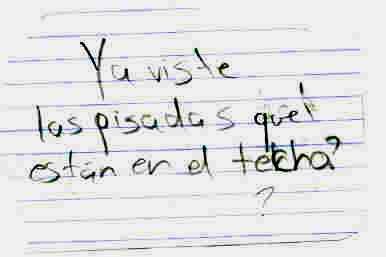 Ya viste
las pisadas que
están en el techo?
?